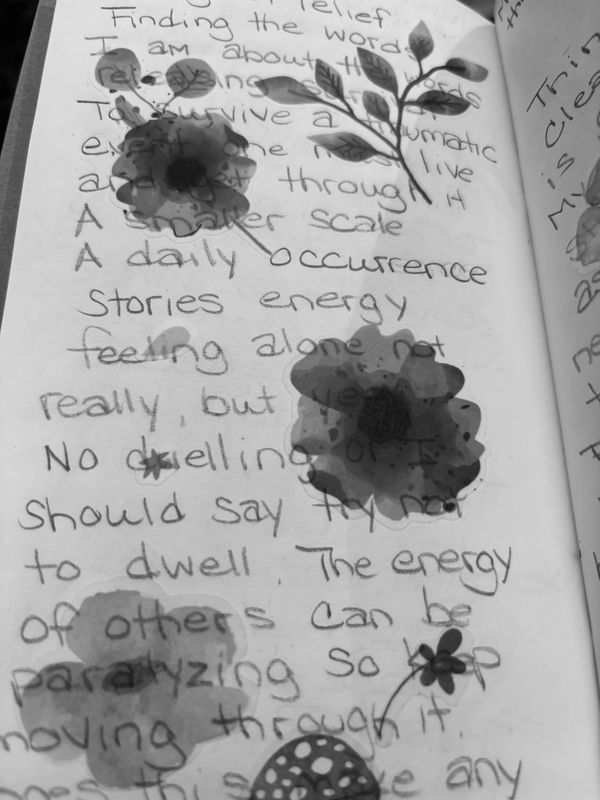 relief
Finding the words
I am about the words
To survive a traumatic
event one live
and get through it
A smaller scale
A daily occurrence
Stories energy
feeling alone not
really, but
No dwelling or I
should say try not
to dwell. The energy
of others can be
paralyzing so keep
moving through it.
any
Thin
is
My